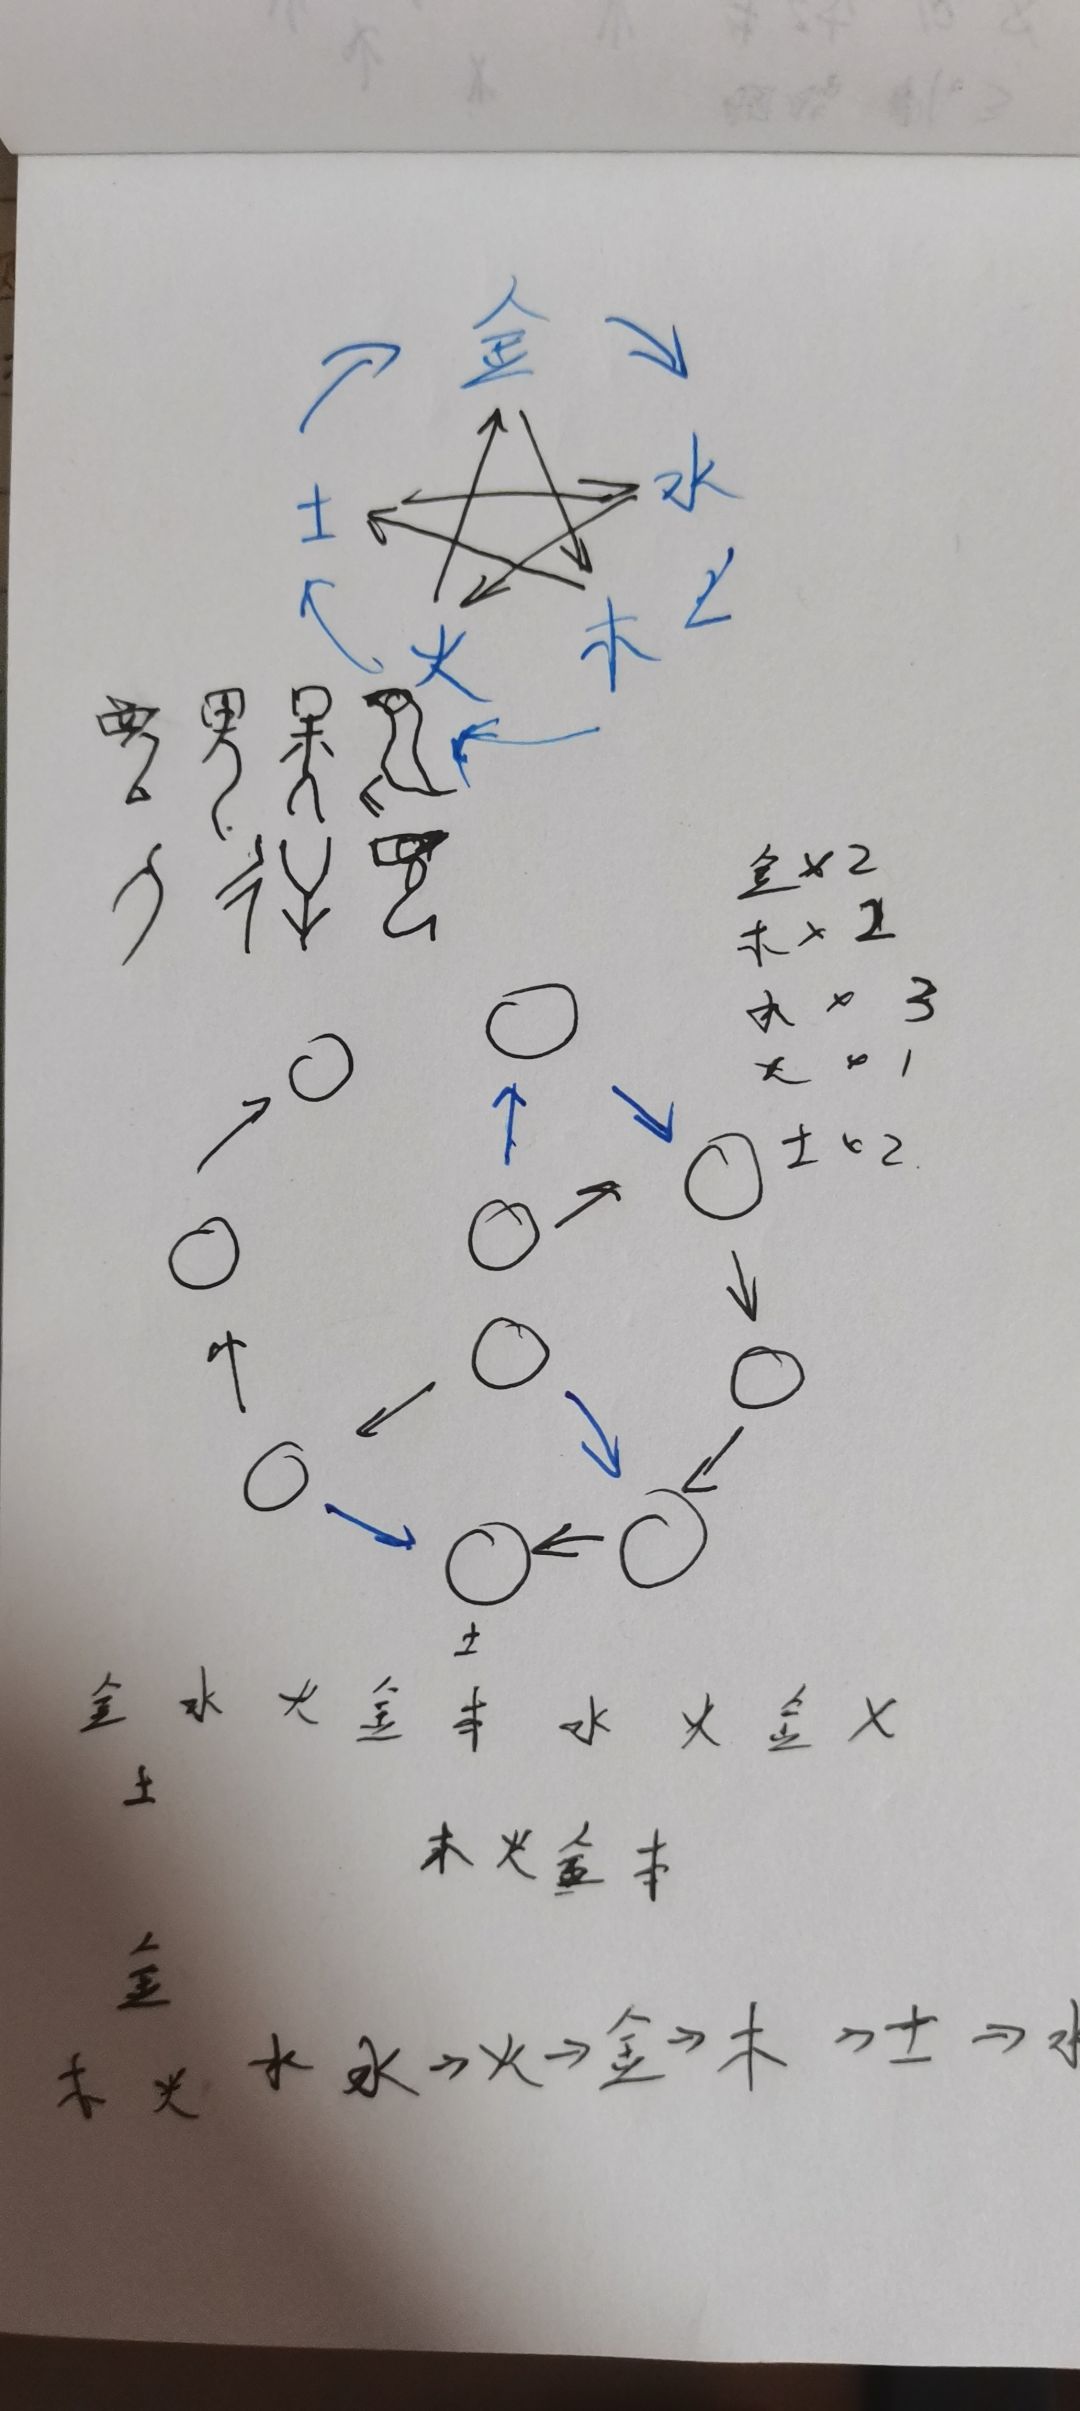 金
土 水
火 木
金×2
木×2
水×3
火×1
土×2
土
金 水 火 金 木 水 火 金 X
土
木 火 金 木
金
木 火 水 水→火→金→木→土→水